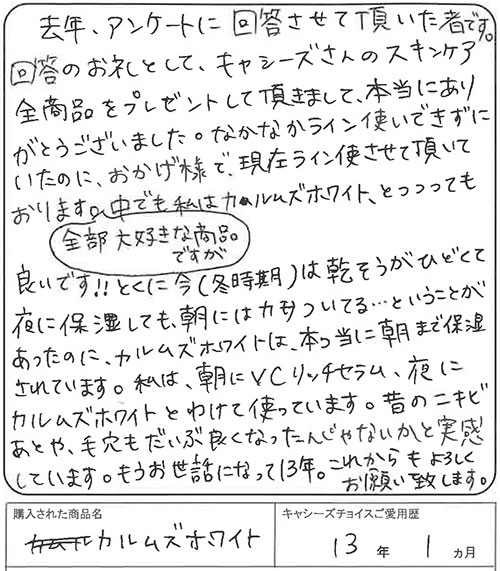 去年、アンケートに回答させて頂いた者です。
回答のお礼として、キャシーズさんのスキンケア
全商品をプレゼントして頂きまして、本当にあり
がとうございました。なかなかライン使いできずに
いたのに、おかげ様で、現在ライン使させて頂いて
おります。中でも私はカルムズホワイト、とっっっても
全部大好きな商品
ですが
良いです!!とくに今(冬時期)は乾そうがひどくて
夜に保湿しても、朝にはカサついてる…ということが
あったのに、カルムズホワイトは、本っ当に朝まで保湿
されています。私は、朝にVCリッチセラム、夜に
カルムズホワイトとわけて使っています。昔のニキビ
あとや、毛穴もだいぶ良くなったんじゃないかと実感
しています。もうお世話になって13年。これからもよろしく
お願い致します。
購入された商品名
カルムズホワイト
キャシーズチョイスご愛用歴
13年1ヵ月